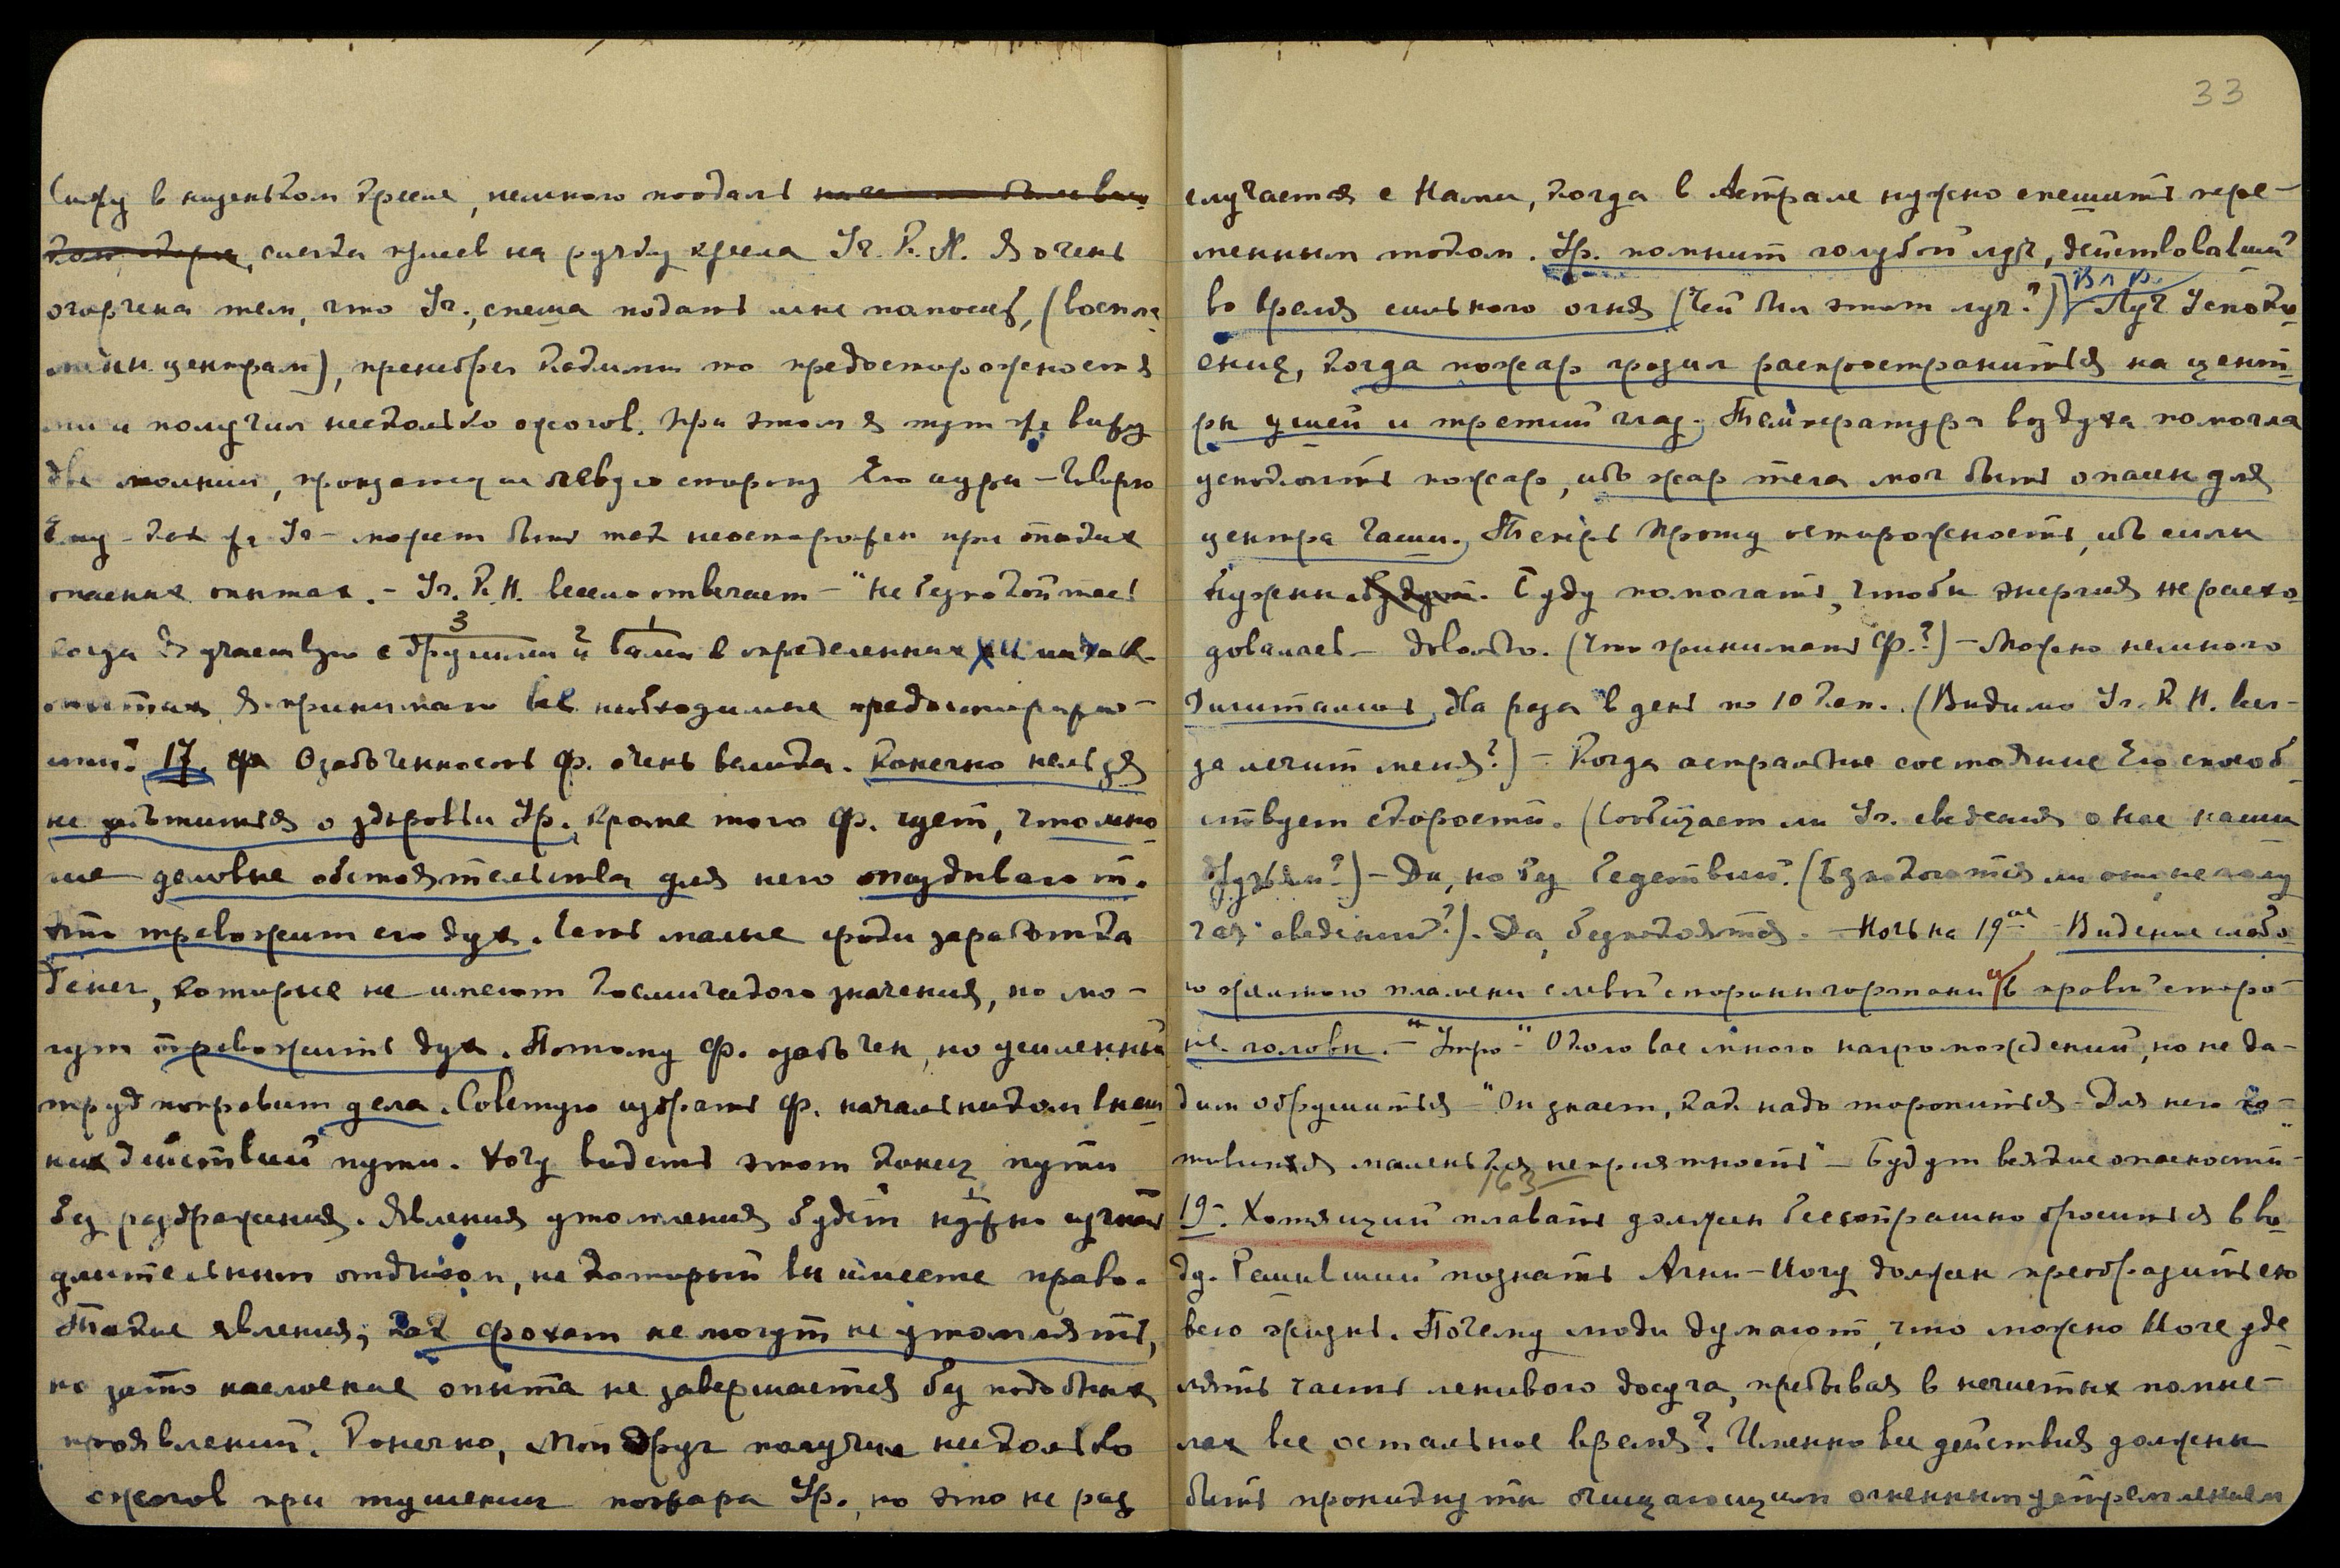 Сижу в низеньком кресле, немного поодаль
слегка присев на ручку кресла Уч. К. Х. Я очень
огорчена тем, что Уч., спеша подать мне помощь, (воспла
мен. центрам), пренебрег какими то предосторожностя
ми и получил несколько ожогов. При этом я тут же вижу
две молнии, пронзающие левую сторону Его ауры – Говорю
Ему – как же Уч – может быть так неосторожен при таких
опасных опытах. – Уч. К. Х. весело отвечает – "Не беспокойтесь
когда Я участвую с другими и Вами в определенных
опытах Я принимаю все необходимые предосторожно-
сти". 17. Озабоченность Ф. очень велика. Конечно нельзя
не заботиться о здоровьи Ур. Кроме того Ф. чует, что мно-
гие деловые обстоятельства для него опаздывают.
Это тревожит его дух. Есть малые сроки заработка
денег, которые не имеют космического значения, но мо-
гут тревожить дух. Потому Ф. озабочен, но усиленный
труд поправит дела. Советую избрать Ф. начальником внеш
них действий пути. Хочу видеть этот конец пути
без раздражения. Явления утомления будет нужно изгнать
длительным отдыхом, на который вы имеете право.
Такие явления, как фохат не могут не утомлять,
но зато наслоение опыта не завершается без подобных
проявлений. Конечно, Мой друг получил несколько
ожогов при тушении пожара Ур., но это не раз
33
случается с Нами, когда в Астрале нужно спешить пере-
менным током. Ур. помнит голубой луч, действовавший
Вл. р.
во время сильного огня (Чей был этот луч?) Луч Успоко-
ения, когда пожар грозил распространиться на цент-
ры ушей и третий глаз. Температура воздуха помогла
успокоить пожар, ибо жар тела мог быть опасен для
центра Чаши. Теперь Прошу осторожность, ибо силы
нужны. Буду помогать, чтобы энергия не расхо-
довалась – довольно. (Что принимать Ф.?) – Можно немного
дигиталис, два раза в день по 10 кап. (Видимо Уч. К. Х. всег-
да лечит меня?) – Когда астральное состояние Его способ-
ствует скорости. (Сообщает ли Уч. сведения о нас нашим
друзьям?) – Да, но без бедствий. (Беспокоятся ли они не полу
чая сведений?). Да, беспокоятся. – Ночь на 19ое – Видение слабо-
го желтого пламени с левой стороны гортани и в правой сторо-
не головы. – Утро – "Около вас много нагромождений, но не да-
дим обрушиться – "Он знает, как надо торопиться – Для него го-
товится маленькая неприятность" – Будут всякие опасности –
163
19. Хотящий плавать должен бесстрашно броситься в во-
ду. Решивший познать Агни-Йогу должен преобразить ею
всю жизнь. Почему люди думают, что можно Йоге уде-
лять часть ленивого досуга, пребывая в нечистых помыс-
лах все остальное время? Именно все действия должны
быть проникнуты очищающим огненным устремлением